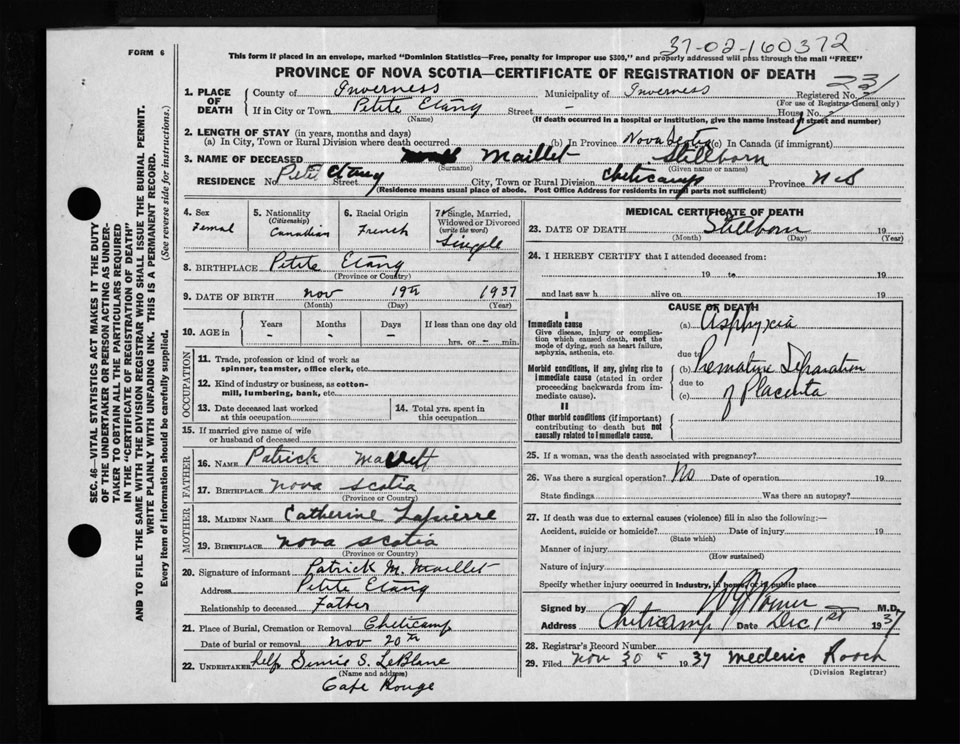 37-02-160372
FORM 6
This form if placed in an envelope, marked "Dominion Statistics—Free, penalty for improper use $300," and properly addressed will pass through the mail "FREE"
PROVINCE OF NOVA SCOTIA—CERTIFICATE OF REGISTRATION OF DEATH
SEC. 46—VITAL STATISTICS ACT MAKES IT THE DUTY
OF THE UNDERTAKER OR PERSON ACTING AS UNDER-
TAKER TO OBTAIN ALL THE PARTICULARS REQUIRED
IN THE "CERTIFICATE OF REGISTRATION OF DEATH"
AND TO FILE THE SAME WITH THE DIVISION REGISTRAR WHO SHALL ISSUE THE BURIAL PERMIT.
WRITE PLAINLY WITH UNFADING INK. THIS IS A PERMANENT RECORD.
Every item of information should be carefully supplied. (See reverse side for instructions.)
1. PLACE OF DEATH
County of Inverness Municipality of Inverness Registered No.
(For use of Registrar General only)
If in City or Town Petite Etang Street - House No.
(Name) (If death occurred in a hospital or institution, give the name instead of street and number)
2. LENGTH OF STAY (in years, months and days)
(a) In City, Town or Rural Division where death occurred (b) In Province Nova Scotia (c) In Canada (if immigrant)
3. NAME OF DECEASED Maillet Stillborn
(Surname) (Given name or names)
RESIDENCE No. Petit Etang Street City, Town or Rural Division Cheticamp Province N S
(Residence means usual place of abode. Post Office Address for residents in rural parts not sufficient)
4. Sex
Femal
5. Nationality
(Citizenship)
Canadian
6. Racial Origin
French
7. Single, Married,
Widowed or Divorced
(write the word)
Single
8. BIRTHPLACE Petite Etang
(Province or Country)
9. DATE OF BIRTH Nov 19th 1937
(Month) (Day) (Year)
10. AGE in Years Months Days If less than one day old
- - - hrs. or - min.
OCCUPATION
11. Trade, profession or kind of work as
spinner, teamster, office clerk, etc.
12. Kind of industry or business, as cotton-
mill, lumbering, bank, etc.
13. Date deceased last worked
at this occupation
14. Total yrs. spent in
this occupation
15. If married give name of wife
or husband of deceased
FATHER
16. NAME Patrick Maillett
17. BIRTHPLACE Nova Scotia
(Province or Country)
MOTHER
18. MAIDEN NAME Catherine Lapierre
19. BIRTHPLACE Nova Scotia
(Province or Country)
20. Signature of informant Patrick M. Maillet
Address Petite Etang
Relationship to deceased Father
21. Place of Burial, Cremation or Removal Cheticamp
Date of burial or removal Nov 20th
22. UNDERTAKER S. LeBlanc
(Name and address)
Cape Rouge
MEDICAL CERTIFICATE OF DEATH
23. DATE OF DEATH Stillborn 19
(Month) (Day) (Year)
24. I HEREBY CERTIFY that I attended deceased from:
19 to 19
and last saw h alive on 19
CAUSE OF DEATH
I
Immediate cause
Give disease, injury or complica-
tion which caused death, not the
mode of dying, such as heart failure,
asphyxia, asthenia, etc.
(a) Asphyxia
due to
Morbid conditions, if any, giving rise to
immediate cause (stated in order
proceeding backwards from im-
mediate cause).
(b) Premature Separation
due to
(c) of Placenta
II
Other morbid conditions (if important)
contributing to death but not
causally related to immediate cause.
25. If a woman, was the death associated with pregnancy?
26. Was there a surgical operation? No Date of operation 19
State findings Was there an autopsy?
27. If death was due to external causes (violence) fill in also the following:—
Accident, suicide or homicide? Date of injury 19
(State which)
Manner of injury
(How sustained)
Nature of injury
Specify whether injury occurred in Industry, in home, or in public place
Signed by M.D.
Address Cheticamp Date Dec 1st 1937
28. Registrar's Record Number
29. Filed Nov 30 1937 Mederic Roach
(Division Registrar)